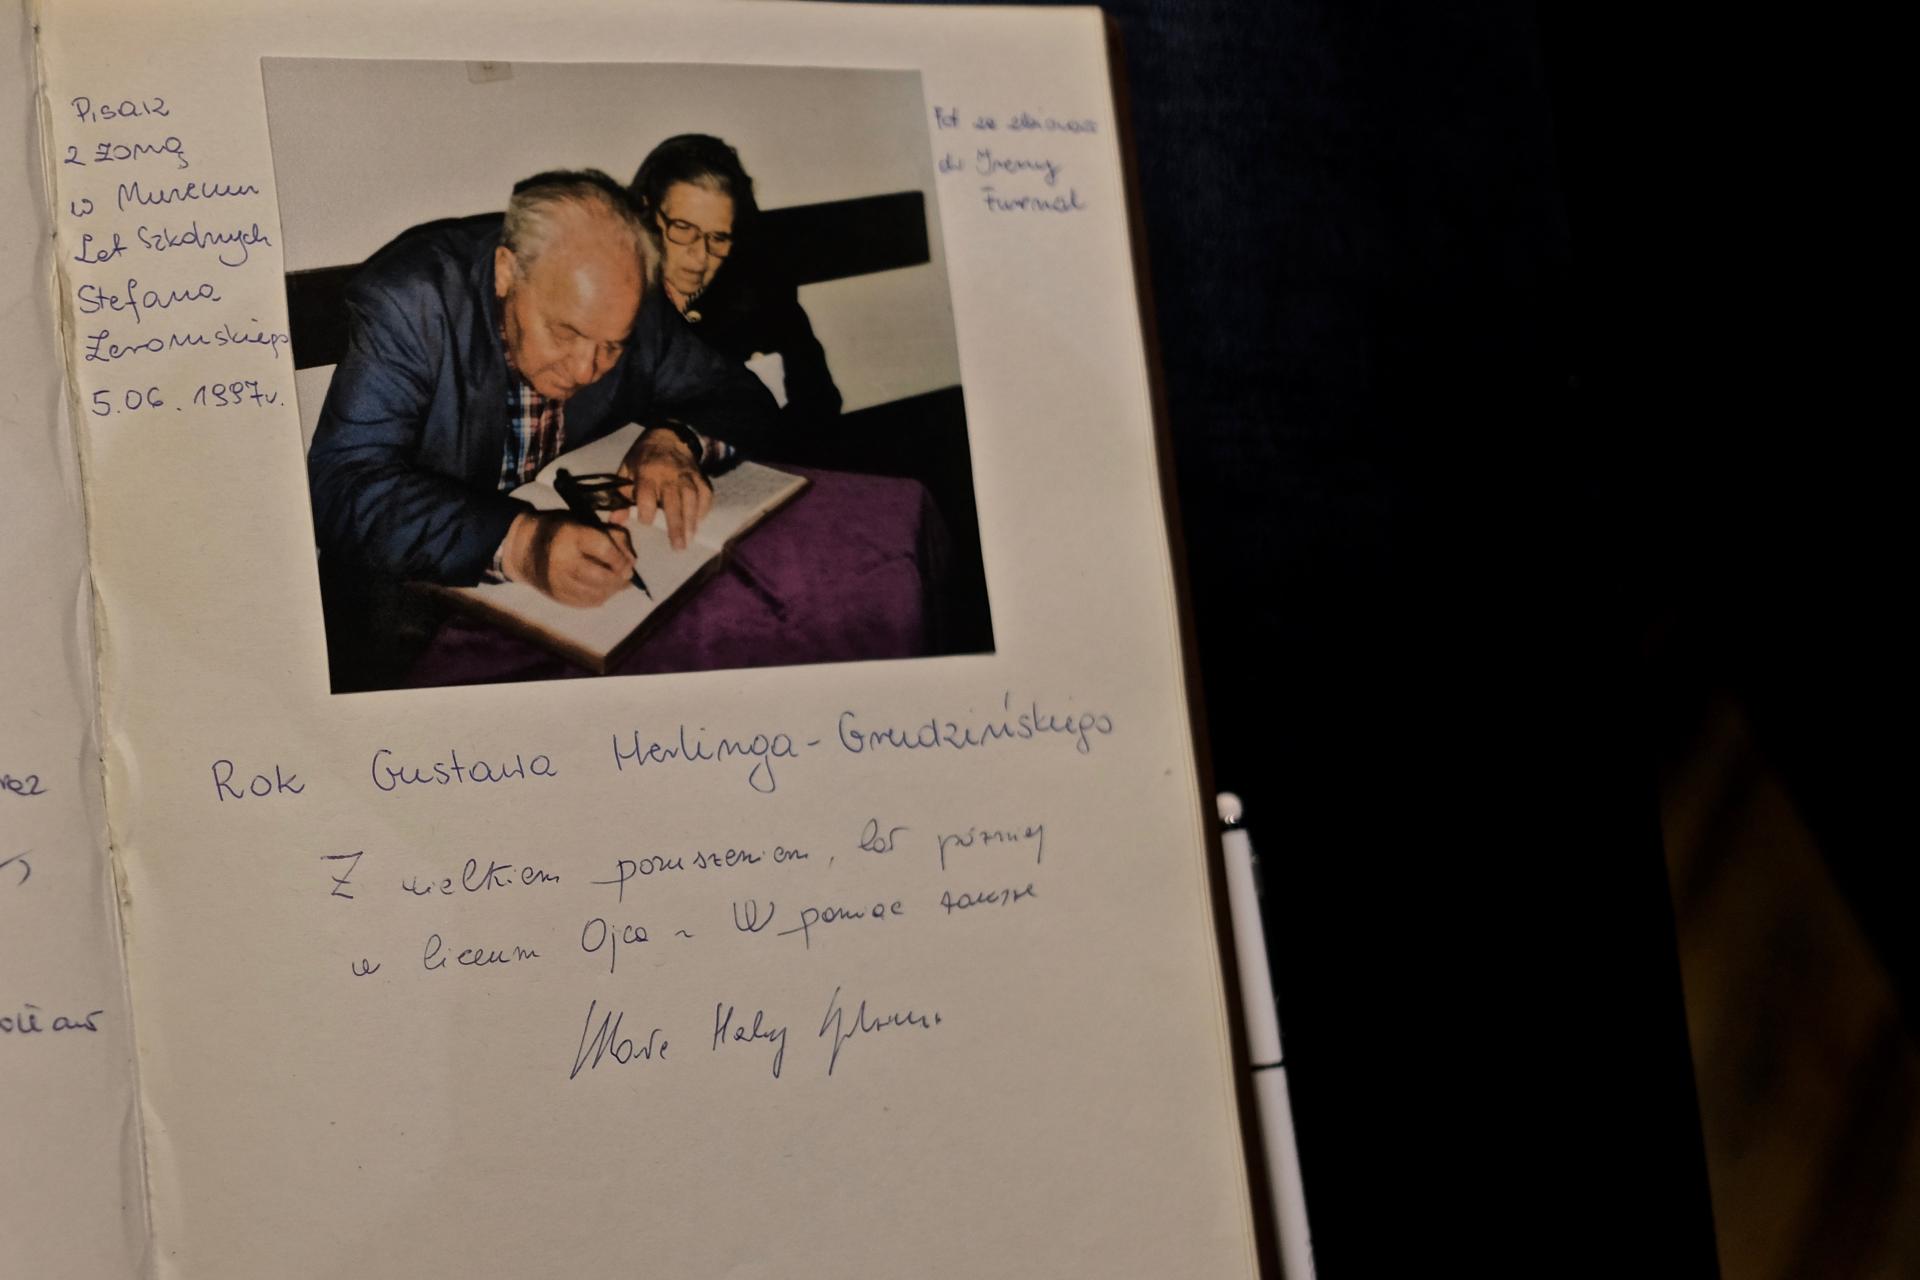 Pisarz
z żoną
w Muzeum
Lat Szkolnych
Stefana
Żeromskiego
5.06.1997r.
Fot ze zbiorów
dr Ireny
Furnal
Rok Gustawa Herlinga-Grudzińskiego
Z wielkiem poruszeniem, później
w liceum Ojca - W pamięć zawsze
Marta Herling